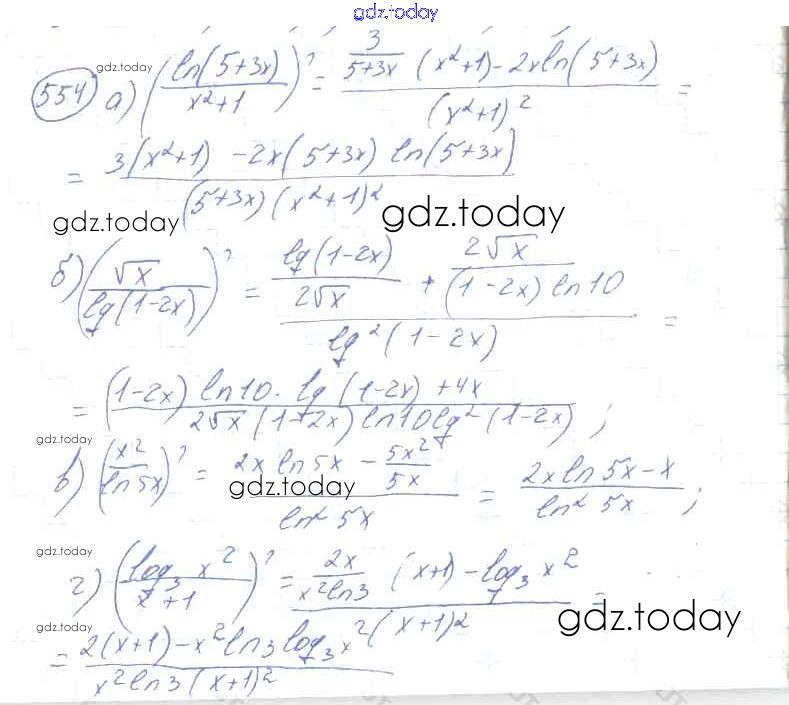 gdz.today
gdz.today
554 а) (ln(5+3x) / x²+1)' = (3/(5+3x) (x²+1) - 2x ln(5+3x)) / (x²+1)² =
= 3(x²+1) - 2x(5+3x) ln(5+3x) / (5+3x)(x²+1)²
gdz.today gdz.today
б) (√x / lg(1-2x))' = (lg(1-2x) / 2√x + 2√x / (1-2x) ln10) / lg²(1-2x) =
= (1-2x) ln10 · lg(1-2x) + 4x / 2√x (1-2x) ln10 lg²(1-2x) ;
gdz.today
в) (x² / ln5x)' = (2x ln5x - 5x²/5x) / ln² 5x = 2x ln5x - x / ln² 5x ;
gdz.today
gdz.today
г) (log₃ x² / x+1)' = (2x / x² ln3 (x+1) - log₃ x²) / (x+1)² =
gdz.today gdz.today
= 2(x+1) - x² ln3 log₃ x² / x² ln3 (x+1)²